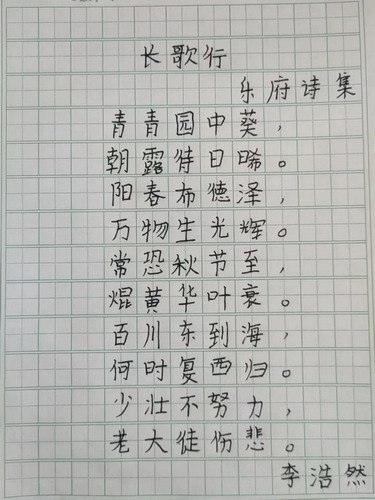 长歌行
乐府诗集
青青园中葵，
朝露待日晞。
阳春布德泽，
万物生光辉。
常恐秋节至，
焜黄华叶衰。
百川东到海，
何时复西归。
少壮不努力，
老大徒伤悲。
李浩然